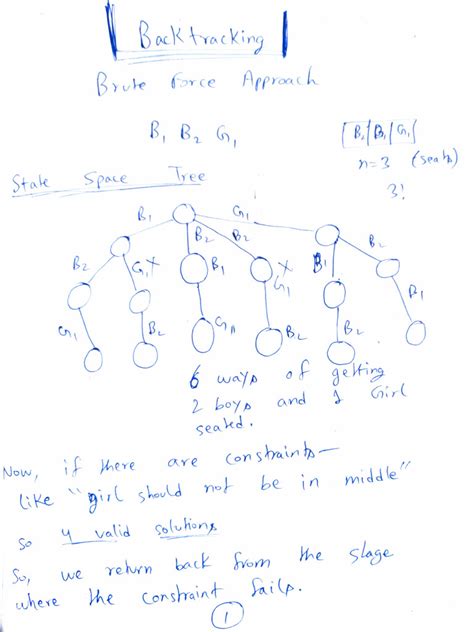 Backtracking
Brute Force Approach
B1 B2 G1
B2 B1 G1
n=3 (seats)
3!
State Space Tree
B1 G1
B2 B2 B2
B2 G1 X B1 X G1 B1
G1 B2 G1 B2 B2 B1
6 ways of getting
2 boys and 1 Girl
seated.
Now, if there are constraints—
like "girl should not be in middle"
so 4 valid solutions
So, we return back from the stage
where the constraint fails.
1